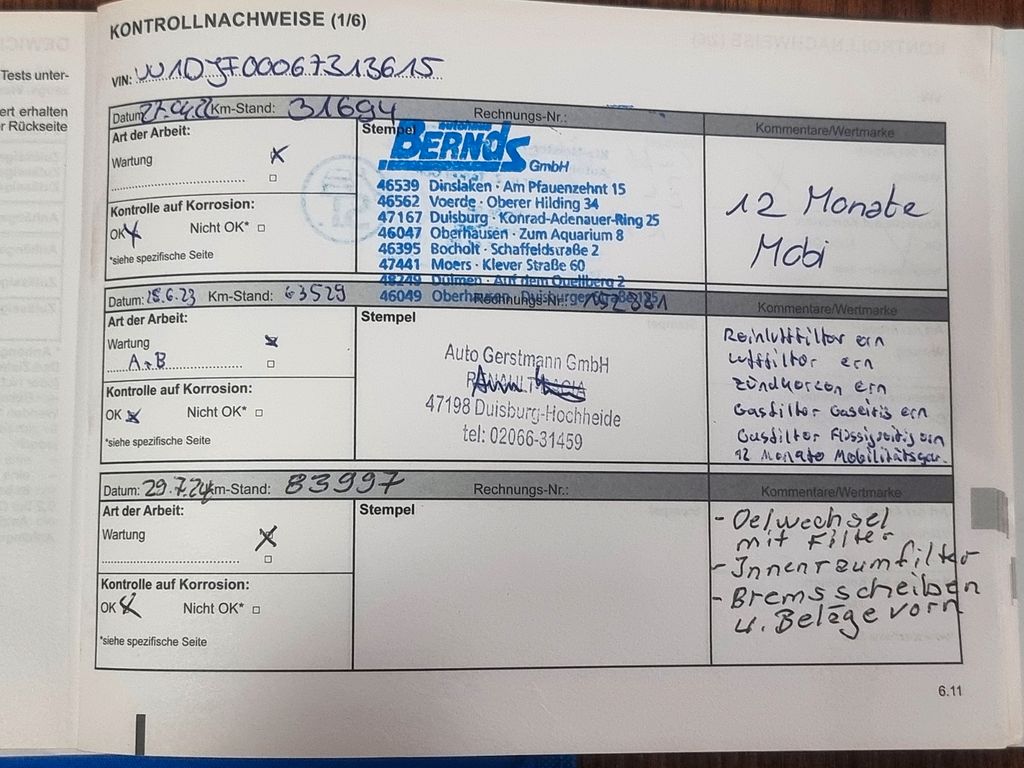 KONTROLLNACHWEISE (1/6)
Tests unter-
ert erhalten
r Rückseite
VIN: UU1DJF00067313615
Datum: Km-Stand: 31694 Rechnungs-Nr.: Kommentare/Wertmarke
Art der Arbeit:
Wartung
Kontrolle auf Korrosion:
OK Nicht OK*
*siehe spezifische Seite
Stempel
autohaus
BERNDS
GmbH
46539 Dinslaken · Am Pfauenzehnt 15
46562 Voerde · Oberer Hilding 34
47167 Duisburg · Konrad-Adenauer-Ring 25
46047 Oberhausen · Zum Aquarium 8
46395 Bocholt · Schaffeldstraße 2
47441 Moers · Klever Straße 60
48249 Dülmen · Auf dem Quellberg 2
46049 Oberhausen · Duisburger Straße
12 Monate
Mobi
Datum: Km-Stand: 63529 Rechnungs-Nr.: Kommentare/Wertmarke
Art der Arbeit:
Wartung
A+B
Kontrolle auf Korrosion:
OK Nicht OK*
*siehe spezifische Seite
Stempel
Auto Gerstmann GmbH
47198 Duisburg-Hochheide
tel: 02066-31459
Reinluftfilter ern
Luftfilter ern
Zündkerzen ern
Gasfilter Gaseitig ern
Gasfilter Flüssigseitig ern
12 Monate Mobilitätsgar.
Datum: 29.7.24 Km-Stand: 83997 Rechnungs-Nr.: Kommentare/Wertmarke
Art der Arbeit:
Wartung
Kontrolle auf Korrosion:
OK Nicht OK*
*siehe spezifische Seite
Stempel
- Oelwechsel
mit Filter
- Innenraumfilter
- Bremsscheiben
u. Beläge vorn
6.11